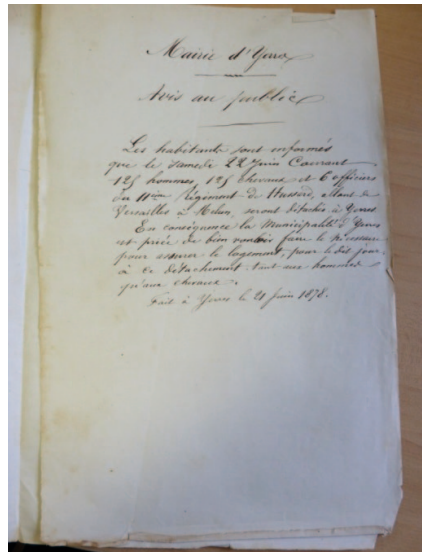 Mairie d'Yerres
Avis au public
Les habitants sont informés
que le Samedi 22 Juin Courant
125 hommes 125 chevaux et 6 officiers
du 11ème Régiment de Hussards, allant de
Versailles à Melun, seront détachés à Yerres
En conséquence la Municipalité d'Yerres
est priée de bien vouloir faire le nécessaire
pour assurer le logement, pour le dit jour,
à ce détachement tant aux hommes
qu'aux chevaux.
Fait à Yerres le 21 Juin 1878.